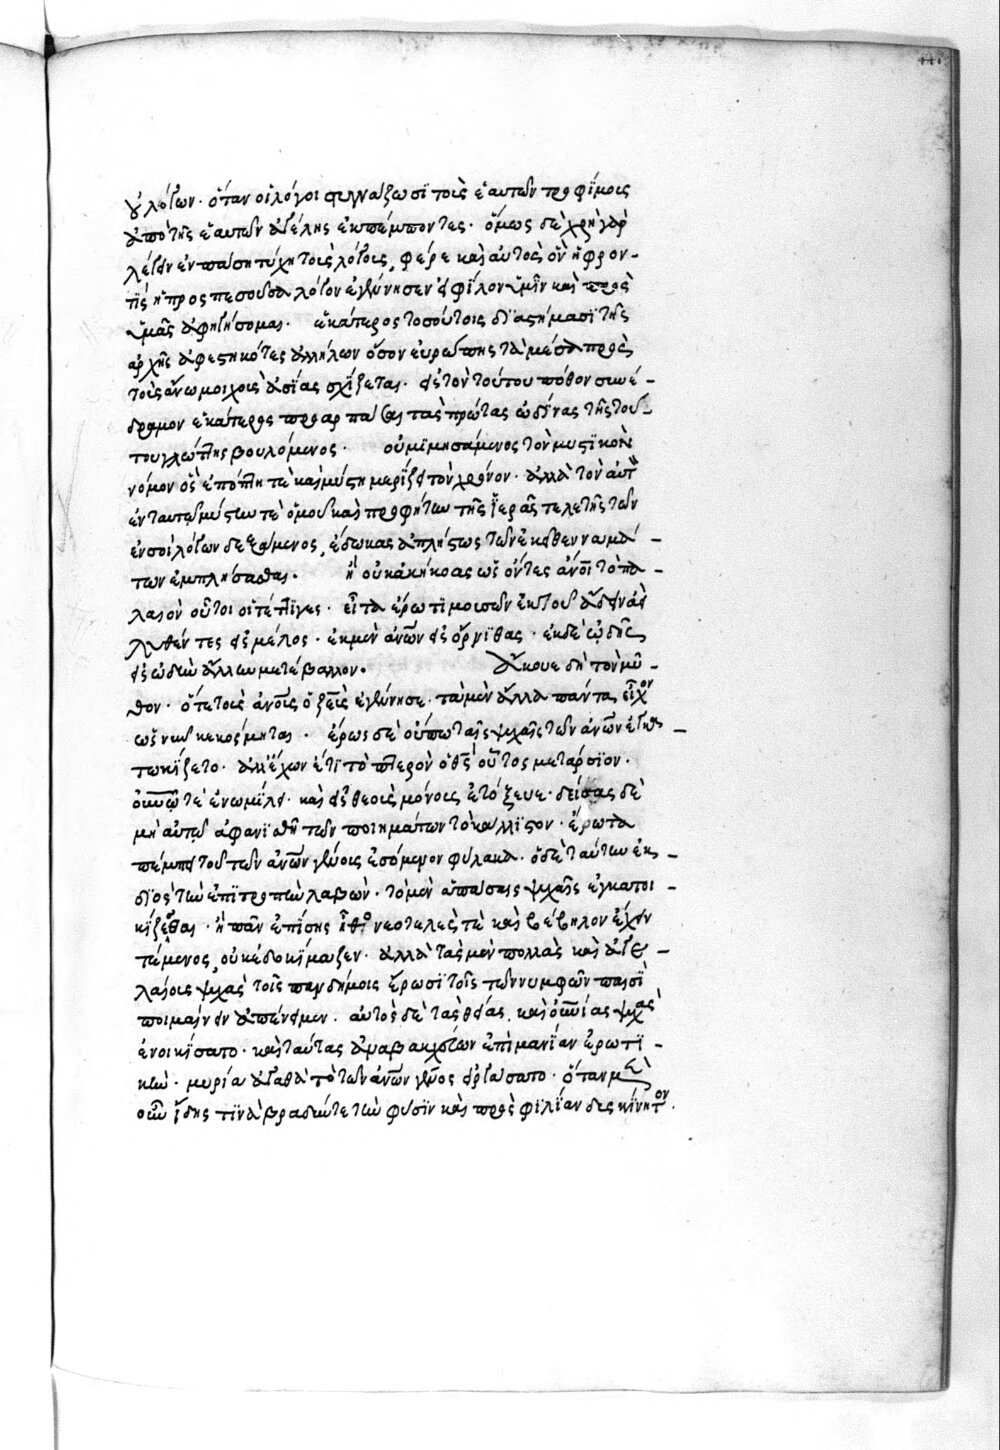 λόγων· ὅταν οἱ λόγοι φωνάξωσι τοῖς ἑαυτῶν τροφίμοις
ἀπὸ τῆς ἑαυτῶν ἀγέλης ἐκπέμποντες· ὅμως δὲ χρὴ γὰρ
λέγειν ἐν πάσῃ τύχῃ τοῖς λόγοις, φέρε καὶ αὐτὸς ὃν ἡ φρον-
τὶς ἡ προσπεσοῦσα λόγον ἐγέννησεν εἰς φίλον ὑμῖν καὶ πρὸς
ὑμᾶς ἀφηγήσομαι· ἑκάτερος τοσούτοις διαστήμασι τῆς
ἀρχῆς ἀφεστηκότες ἀλλήλων ὅσον εὐρώπης τὰ μέσα πρὸς
τοὺς ἄνω μυχοὺς ἀσίας σχίζεται· εἰς τὸν τούτου πόθον συνέ-
δραμον ἑκάτερος προαρπάσαι τὰς πρώτας ὠδίνας τῆς τού-
του γλώττης βουλόμενος· οὐ μιμησάμενος τὸν μυστικὸν
νόμον ὃς ἐπόπτῃ τὲ καὶ μύστῃ μερίζει τὸν χρόνον· ἀλλὰ τὸν αὐτὸν
ἐνταυτῶ μύστην τὲ ὁμοῦ καὶ προφήτην τῆς ἱερᾶς τελετῆς τῶν
ἐν σοὶ λόγων δεξάμενος, ἔδωκας ἀπλήστως τῶν ἐκεῖθεν ναμά-
των ἐμπλήσασθαι· ἢ οὐκ ἀκήκοας ὡς ὄντες ἄνοι τὸ πα-
λαιὸν οὗτοι οἱ τέττιγες· εἶτα ἔρωτι μουσῶν ἐκ τοῦ ἄδειν ἀεὶ
λυθέντες εἰς μέλος· ἐκ μὲν ἀνων εἰς ὄρνιθας· ἐκ δὲ ὠδῆς
εἰς ὠδὴν ἄλλην μετέβαλλον· ἄκουε δὴ τὸν μῦ-
θον· ὅτε τοὺς ἀνους ὁ ζεὺς ἐγέννησε· τὰ μὲν ἄλλα πάντα εἶχον
ὡς νῦν κεκόσμηται· ἔρως δὲ οὔπω ταῖς ψυχαῖς τῶν ἀνων
τωκίζετο· ἀλλ' ἔχων ἔτι τὸ πτερὸν ὁ θς οὗτος μετάρσιον·
οὐνῶ τὲ ἐνωμίλει· καὶ εἰς θεοὺς μόνοις ἐτόξευε· δείσας δὲ
μὴ αὐτῶ ἀφανισθῆ τῶν ποιημάτων τὸ κάλλιστον· ἔρωτα
πέμπει τοῦ τῶν ἀνων γένους ἐσόμενον φύλακα· ὁ δὲ ταύτην ἐκ
διὸς τὴν ἐπιτροπὴν λαβὼν· τὸ μὲν ἁπάσαις ψυχαῖς ἐγκατοι-
κίζεσθαι· ἢ πᾶν ἐπίσης ἦθος νεοτελές τὲ καὶ βέβηλον ἔχειν
τέμενος, οὐκ ἐδοκίμαζεν· ἀλλὰ τὰς μὲν πολλὰς καὶ ἀγε-
λαίους ψυχὰς τοῖς πανδήμοις ἔρωσι τοῖς τῶν νυμφῶν παισὶ
ποιμαίνειν ἀπένειμεν· αὐτὸς δὲ τὰς θείας, καὶ οὐνίας ψυχὰς
ἐνοικίσατο· καὶ ταύτας ἀναβακχεύων ἐπὶ μανίαν ἐρωτι-
κὴν· μυρία ἀγαθὰ τὸ τῶν ἀνων γένος εἰργάσατο· ὅταν μὲν
οὖν ἴδης τινὰ βραδεῖάν τε τὴν φύσιν καὶ πρὸς φιλίαν δυσκίνητον·